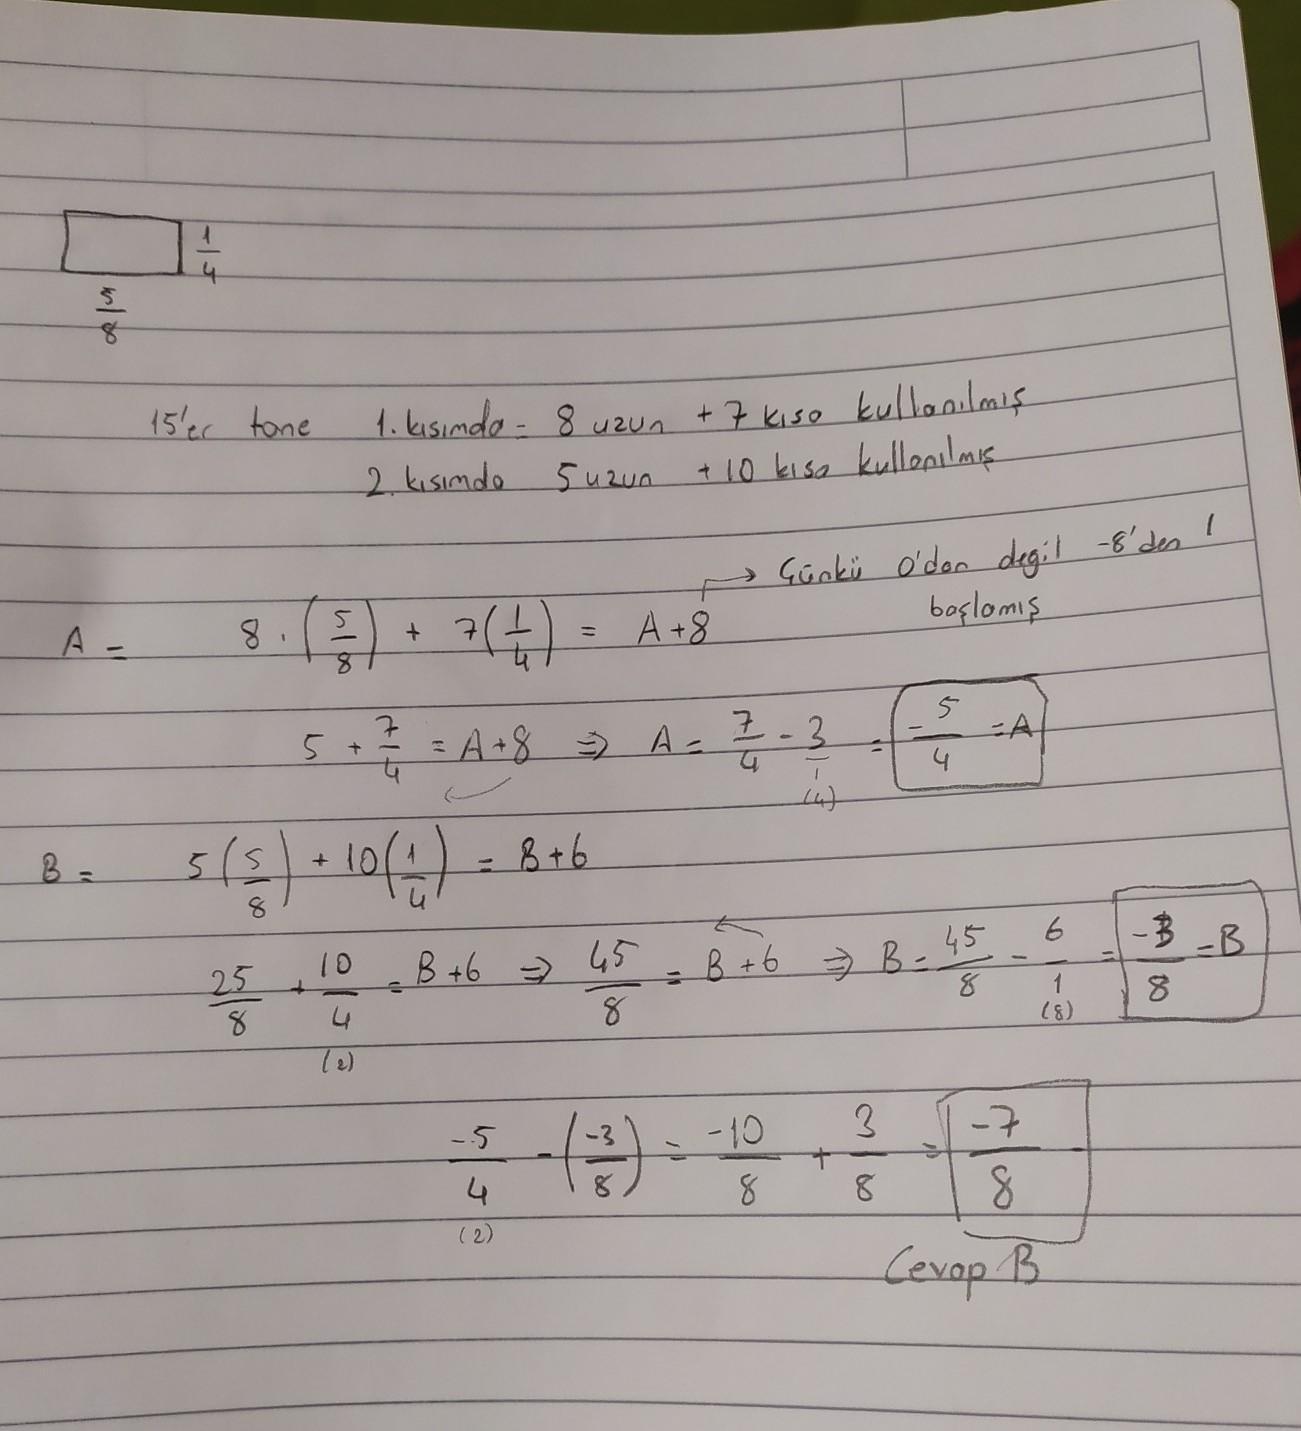 1/4
5/8
15'er tane 1. kısımda = 8 uzun + 7 kısa kullanılmış
2. kısımda 5 uzun + 10 kısa kullanılmış
→ Çünkü 0'dan değil -8'den
başlamış
A = 8 . (5/8) + 7(1/4) = A+8
5 + 7/4 = A+8 ⇒ A = 7/4 - 3/1 = -5/4 = A
(4)
B = 5(5/8) + 10(1/4) = B+6
25/8 + 10/4 = B+6 ⇒ 45/8 = B+6 ⇒ B = 45/8 - 6/1 = -3/8 = B
(2) (8)
-5/4 - (-3/8) = -10/8 + 3/8 = -7/8
(2)
Cevap B